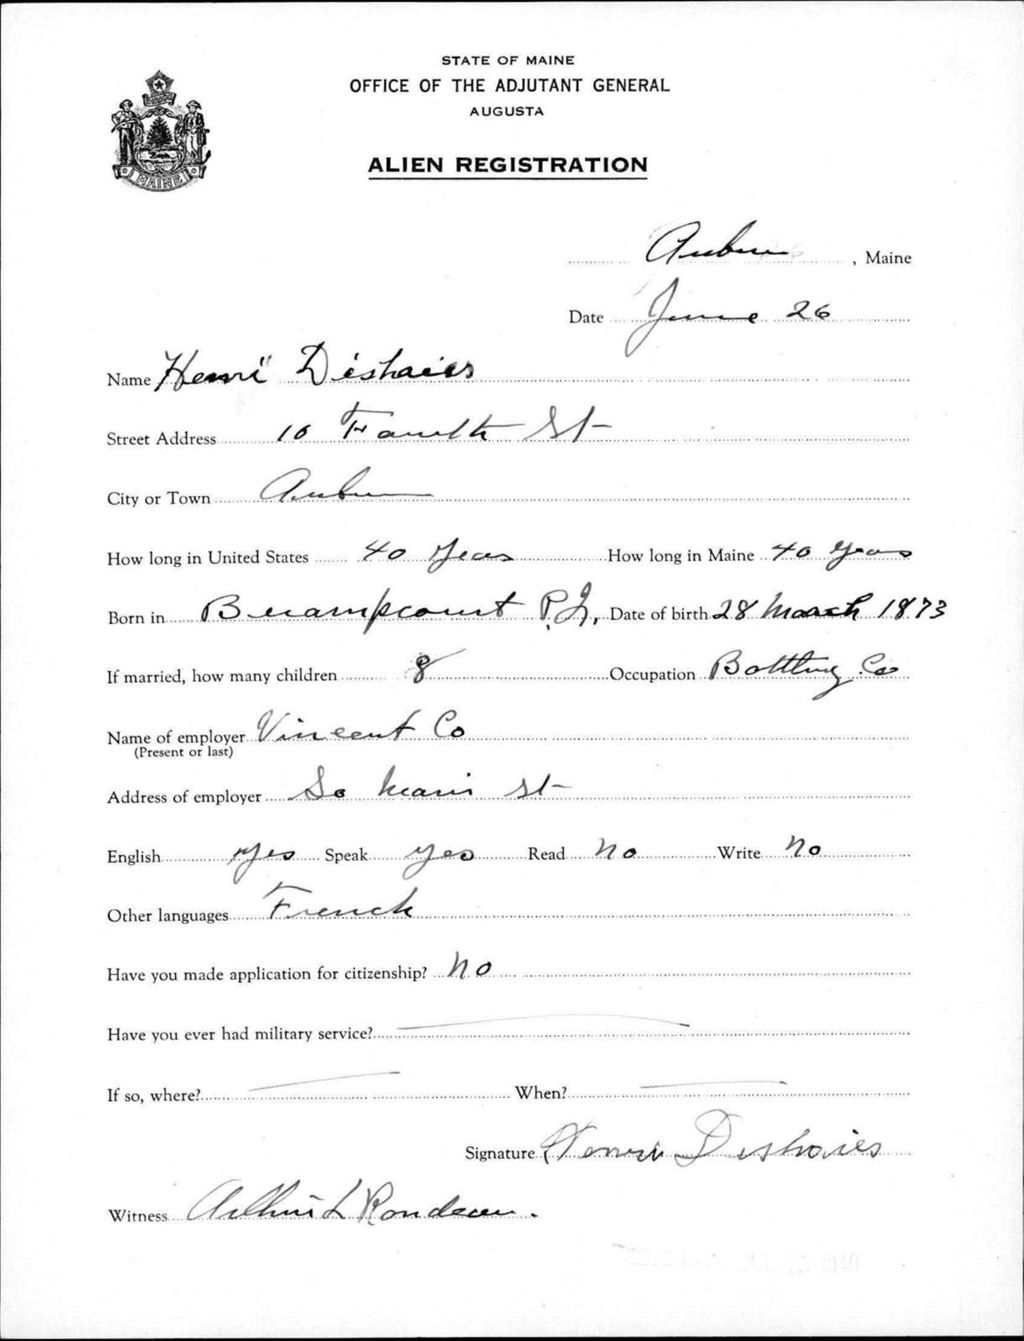 STATE OF MAINE
OFFICE OF THE ADJUTANT GENERAL
AUGUSTA
ALIEN REGISTRATION
MAINE
Auburn, Maine
Date June 26
Name Henri Deshaies
Street Address 10 Fourth St
City or Town Auburn
How long in United States 40 years How long in Maine 40 years
Born in P.Q. Date of birth 28 March 1873
If married, how many children 8 Occupation Bottling Co
Name of employer Vincent Co
(Present or last)
Address of employer So Main St
English yes Speak yes Read No Write No
Other languages French
Have you made application for citizenship? No
Have you ever had military service?
If so, where? When?
Signature Henri Deshaies
Witness Arthur L Rondeau.